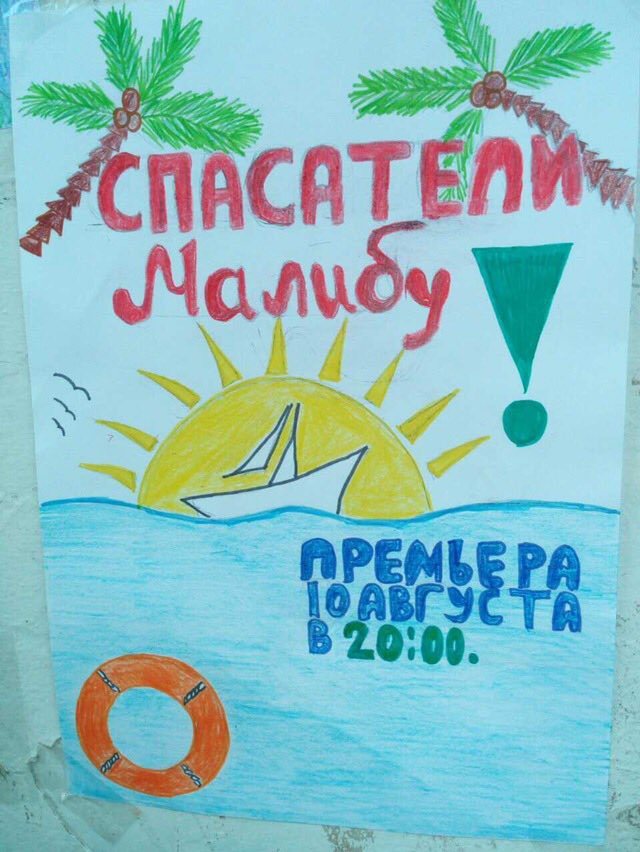 СПАСАТЕЛИ
Малибу!
ПРЕМЬЕРА
10 АВГУСТА
В 20:00.